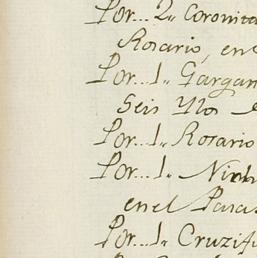 Por... 2,, Coronita
Rosario, en e
Por... 1,, Gargan
Seis Ylos
Por... 1,, Rosario
Por... 1,,
en el Para
Por... 1,, Cruzifi